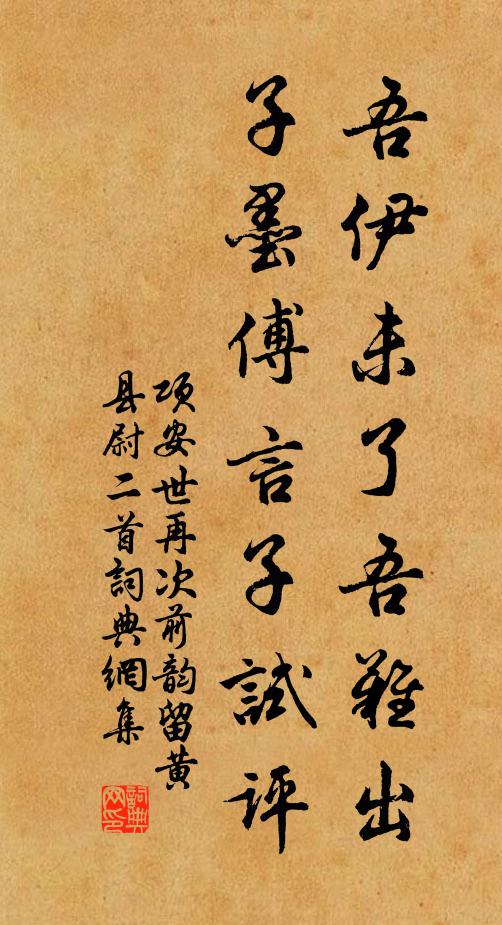 吾伊未了吾難出
子墨傅言子試評
项安世再次前韵留黄
县尉二首詞典網集